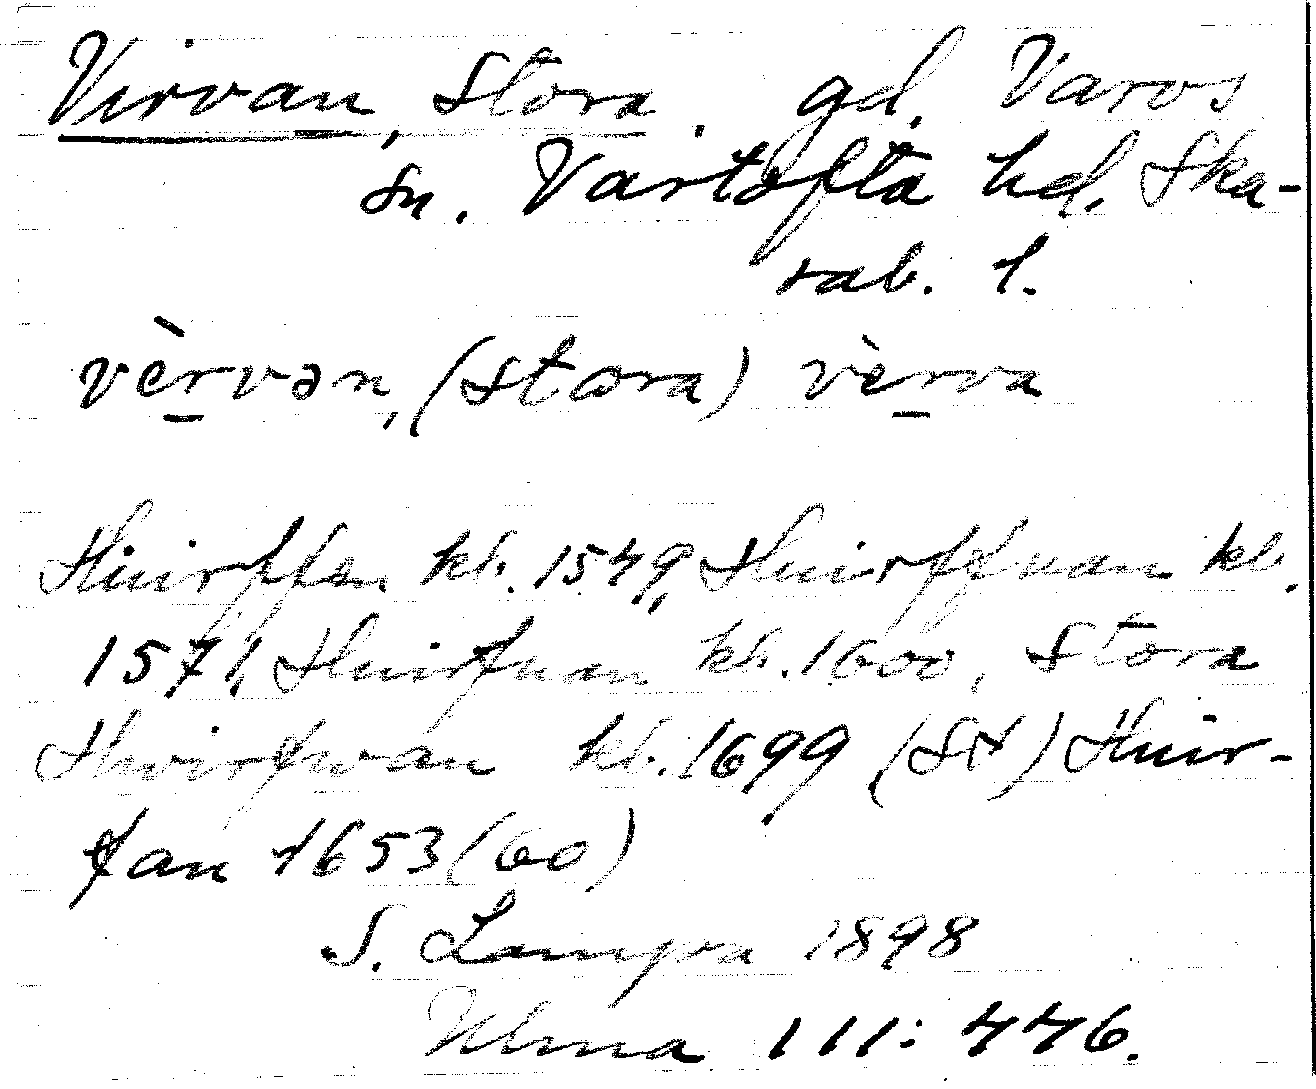 Virvan, Stora. gd. Varvs
sn. Vartofta hd. Ska-
rab. l.
vèrvən, (stɷra) vèrva
Huirffan kb. 1549, Huirffuan kb.
1571, Huirfuan kb. 1600, Stora
Hwirfwan kb. 1699 (St) Huir-
fan 1653 (60)
S. Lampa 1898
Ulma 111: 446.